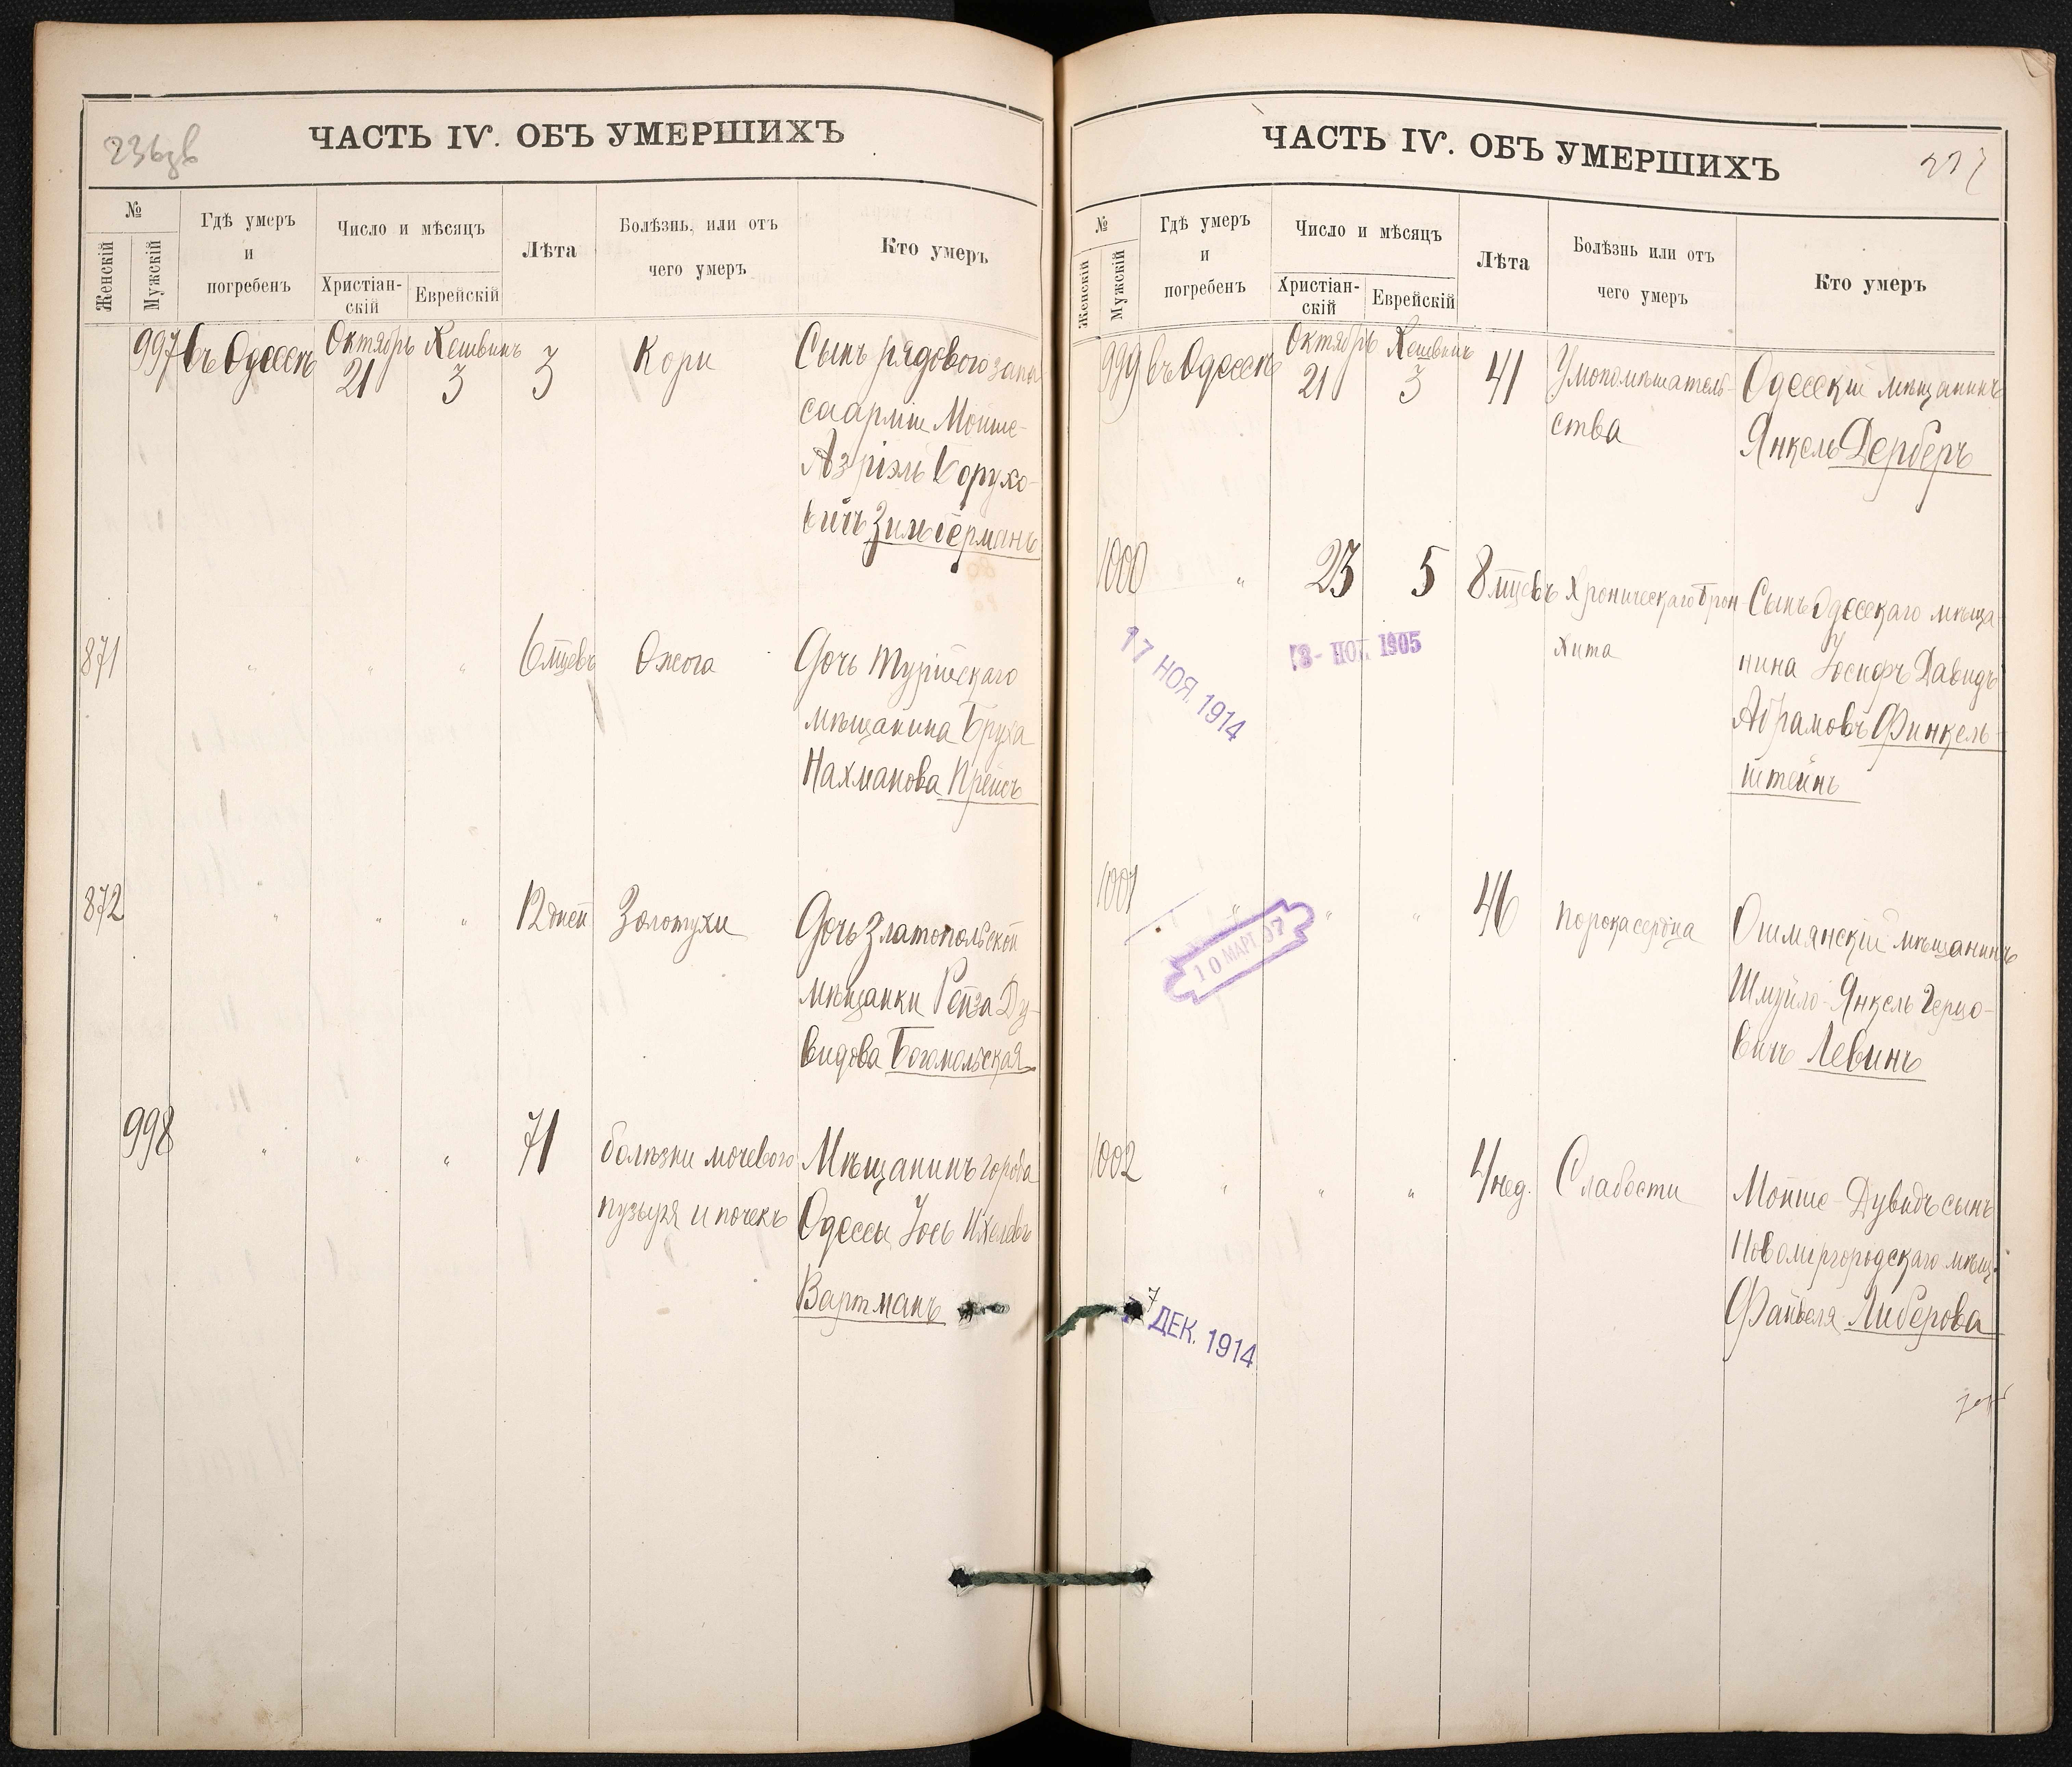 ЧАСТЬ IV. ОБЪ УМЕРШИХЪ
№
Женскій
Мужскій
Гдѣ умеръ
и
погребенъ
Число и мѣсяцъ
Христіан-
скій
Еврейскій
Лѣта
Болѣзнь, или отъ
чего умеръ
Кто умеръ
997 въ Одессѣ Октябрь 21 Хешвинъ 3 3 Кори Сынъ рядового запа
са арміи Мойше-
Азріэль Борухо-
вичъ Зильберманъ
871 " " " 6 мцевъ Ожога Дочь Турійскаго
мѣщанина Бруха
Нахманова Прейсъ
872 " " " 12 дней Золотухи Дочь Златопольской
мѣщанки Рейза Ду-
видова Богомольская
998 " " " 71 болѣзни мочевого Мѣщанинъ города
пузыря и почекъ Одессы Іось Ихелевъ
Вартманъ
ЧАСТЬ IV. ОБЪ УМЕРШИХЪ
№
Женскій
Мужскій
Гдѣ умеръ
и
погребенъ
Число и мѣсяцъ
Христіан-
скій
Еврейскій
Лѣта
Болѣзнь или отъ
чего умеръ
Кто умеръ
999 въ Одессѣ Октябрь 21 Хешвинъ 3 41 Умопомѣшатель- Одесскій мѣщанинъ
ства Янкель Дерберъ
1000 " 23 5 8 мцевъ Хроническаго Брон- Сынъ Одесскаго мѣща
хита нина Іосифъ Давидъ
Абрамовъ Финкель-
штейнъ
17 НОЯ. 1914
1905
1001 " " " 46 порока сердца Ошмянскій мѣщанинъ
Шмуйло-Янкель Герцо-
вичъ Левинъ
10 МАРТ 97
1002 " " " 4 нед. Слабости Мойше-Дувидъ сынъ
Новомиргородскаго мѣщ.
Файвеля Либерова
7 ДЕК. 1914